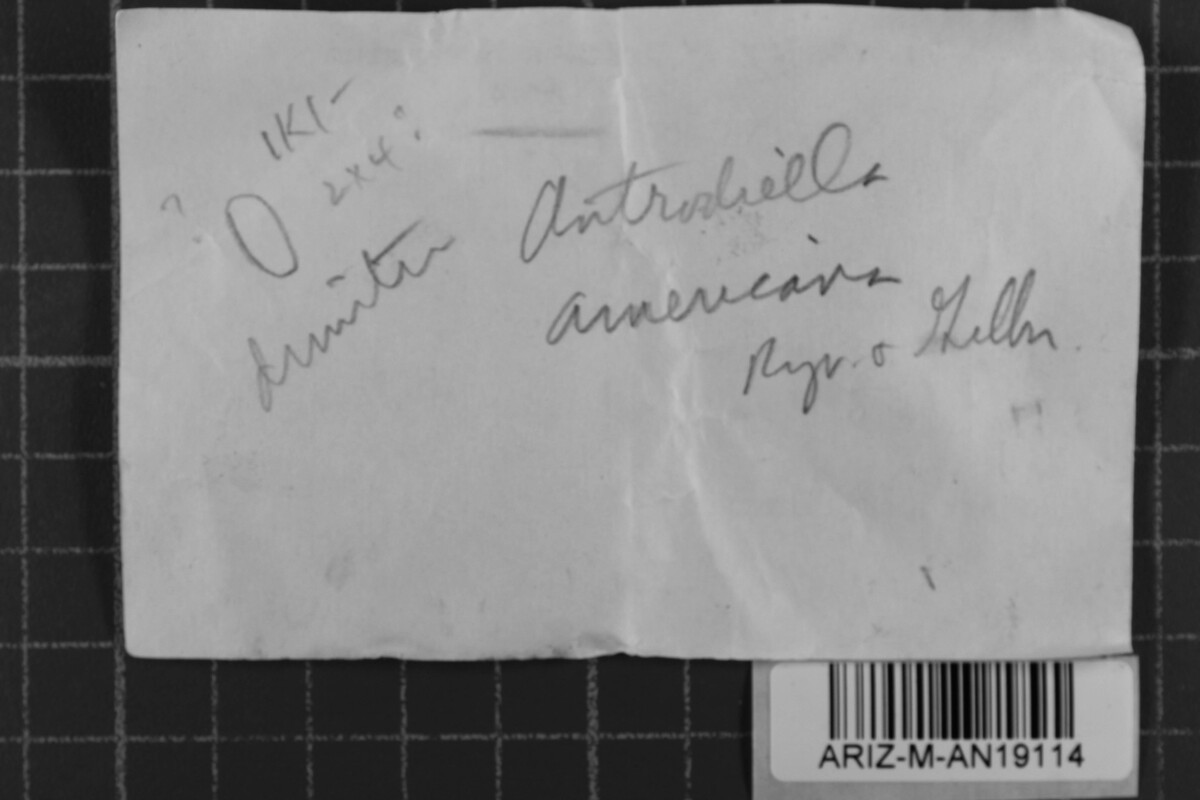 IKI-
2x4
?
dimitic
Antrodiella
americana
Ryv. & Gilbn.
ARIZ-M-AN19114